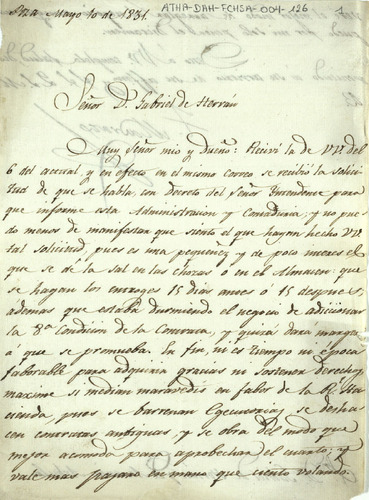 Poza Mayo 10 de 1831.
ATHA-DAH-FCHSA-004-126
1
Señor Dn. Gabriel de Herrán
Muy Señor mio y Dueño: Recivi la de VV del
6 del actual, y en efecto en el mismo Correo se recibió la solici-
tud de que se habla, con Decreto del Señor Yntendente para
que informe esta Administracion y Contaduria; y no pue-
do menos de manifestar que siento el que hayan hecho VV
tal solicitud, pues es una pequeñez y de poco interes el
que se de la sal en las chozas ó en el Almacen: que
se hagan los entregos 15 dias antes ó 15 despues,
ademas que estaba durmiendo el negocio de adicionar
la 8a. Condicion de la Contrata, y quizá dará margen
a que se promueba. En fin, ni es tiempo ni época
faborable para adquirir gracias ni sostener derechos,
maxime si median maravedis en fabor de la Rl. Ha-
cienda, pues se barrenan Egecutorias, se
con contratas antiguas, y se obra del modo que
mejor acomoda para aprobechar el cuarto; y
vale mas pajaro en mano que ciento volando.